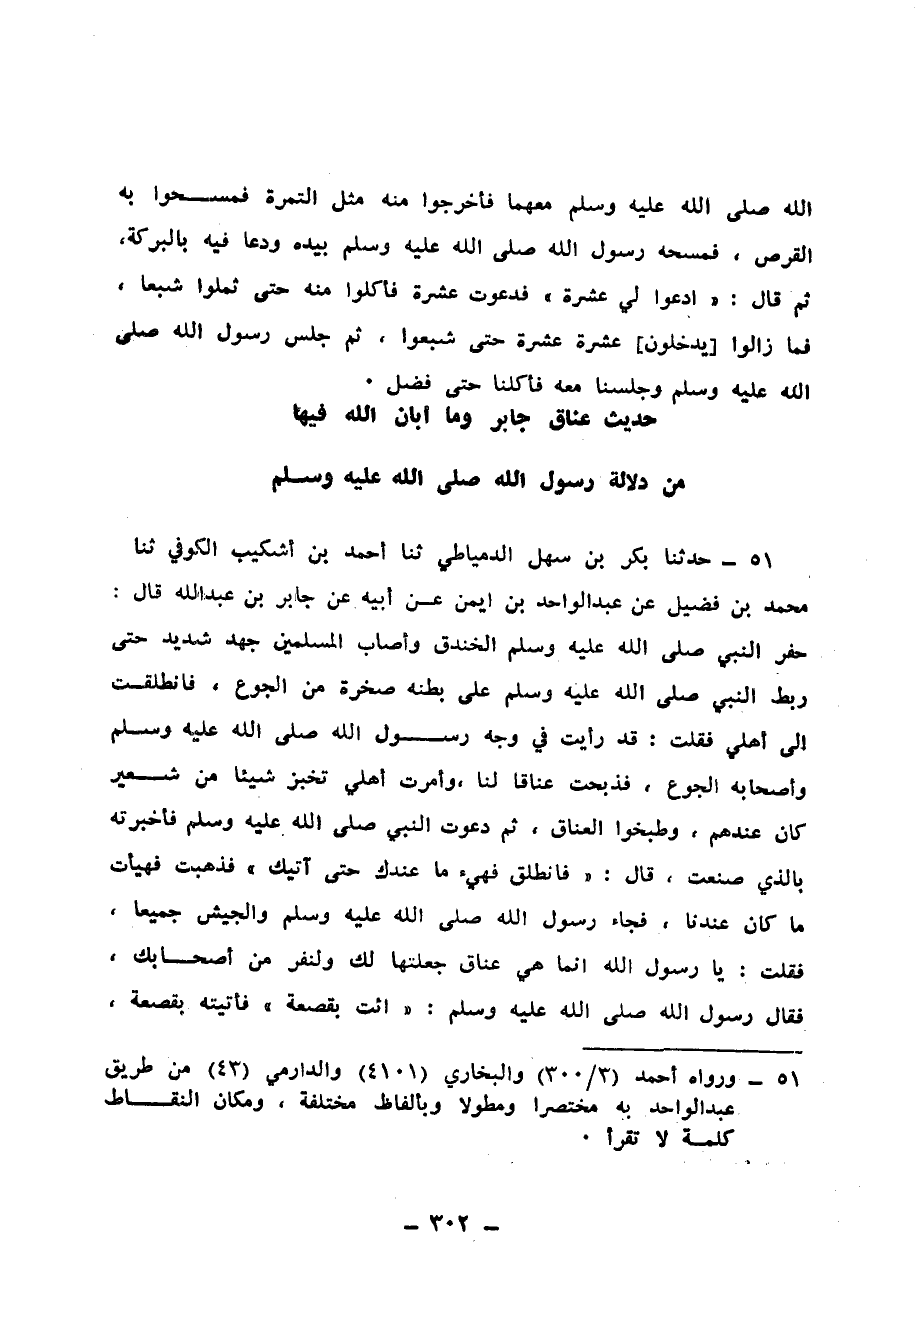 الله صلى الله عليه وسلم معهما فأخرجوا منه مثل التمرة فمسحوا به
القرص ، فمسحه رسول الله صلى الله عليه وسلم بيده ودعا فيه بالبركة،
ثم قال : « ادعوا لي عشرة » فدعوت عشرة فأكلوا منه حتى ثملوا شبعا ،
فما زالوا [يدخلون] عشرة عشرة حتى شبعوا ، ثم جلس رسول الله صلى
الله عليه وسلم وجلسنا معه فأكلنا حتى فضل ٠
حديث عناق جابر وما أبان الله فيها
من دلالة رسول الله صلى الله عليه وسلم
٥١ – حدثنا بكر بن سهل الدمياطي ثنا أحمد بن أشكيب الكوفي ثنا
محمد بن فضيل عن عبدالواحد بن ايمن عن أبيه عن جابر بن عبدالله قال :
حفر النبي صلى الله عليه وسلم الخندق وأصاب المسلمين جهد شديد حتى
ربط النبي صلى الله عليه وسلم على بطنه صخرة من الجوع ، فانطلقت
الى أهلي فقلت : قد رأيت في وجه رسول الله صلى الله عليه وسلم
وأصحابه الجوع ، فذبحت عناقا لنا ،وأمرت أهلي تخبز شيئا من شعير
كان عندهم ، وطبخوا العناق ، ثم دعوت النبي صلى الله عليه وسلم فأخبرته
بالذي صنعت ، قال : « فانطلق فهيء ما عندك حتى آتيك » فذهبت فهيأت
ما كان عندنا ، فجاء رسول الله صلى الله عليه وسلم والجيش جميعا ،
فقلت : يا رسول الله انما هي عناق جعلتها لك ولنفر من أصحابك ،
فقال رسول الله صلى الله عليه وسلم : « ائت بقصعة » فأتيته بقصعة ،
٥١ – ورواه أحمد (٣٠٠/٣) والبخاري (٤١٠١) والدارمي (٤٣) من طريق
عبدالواحد به مختصرا ومطولا وبألفاظ مختلفة ، ومكان النقاط
كلمة لا تقرأ ٠
– ٣٠٢ –